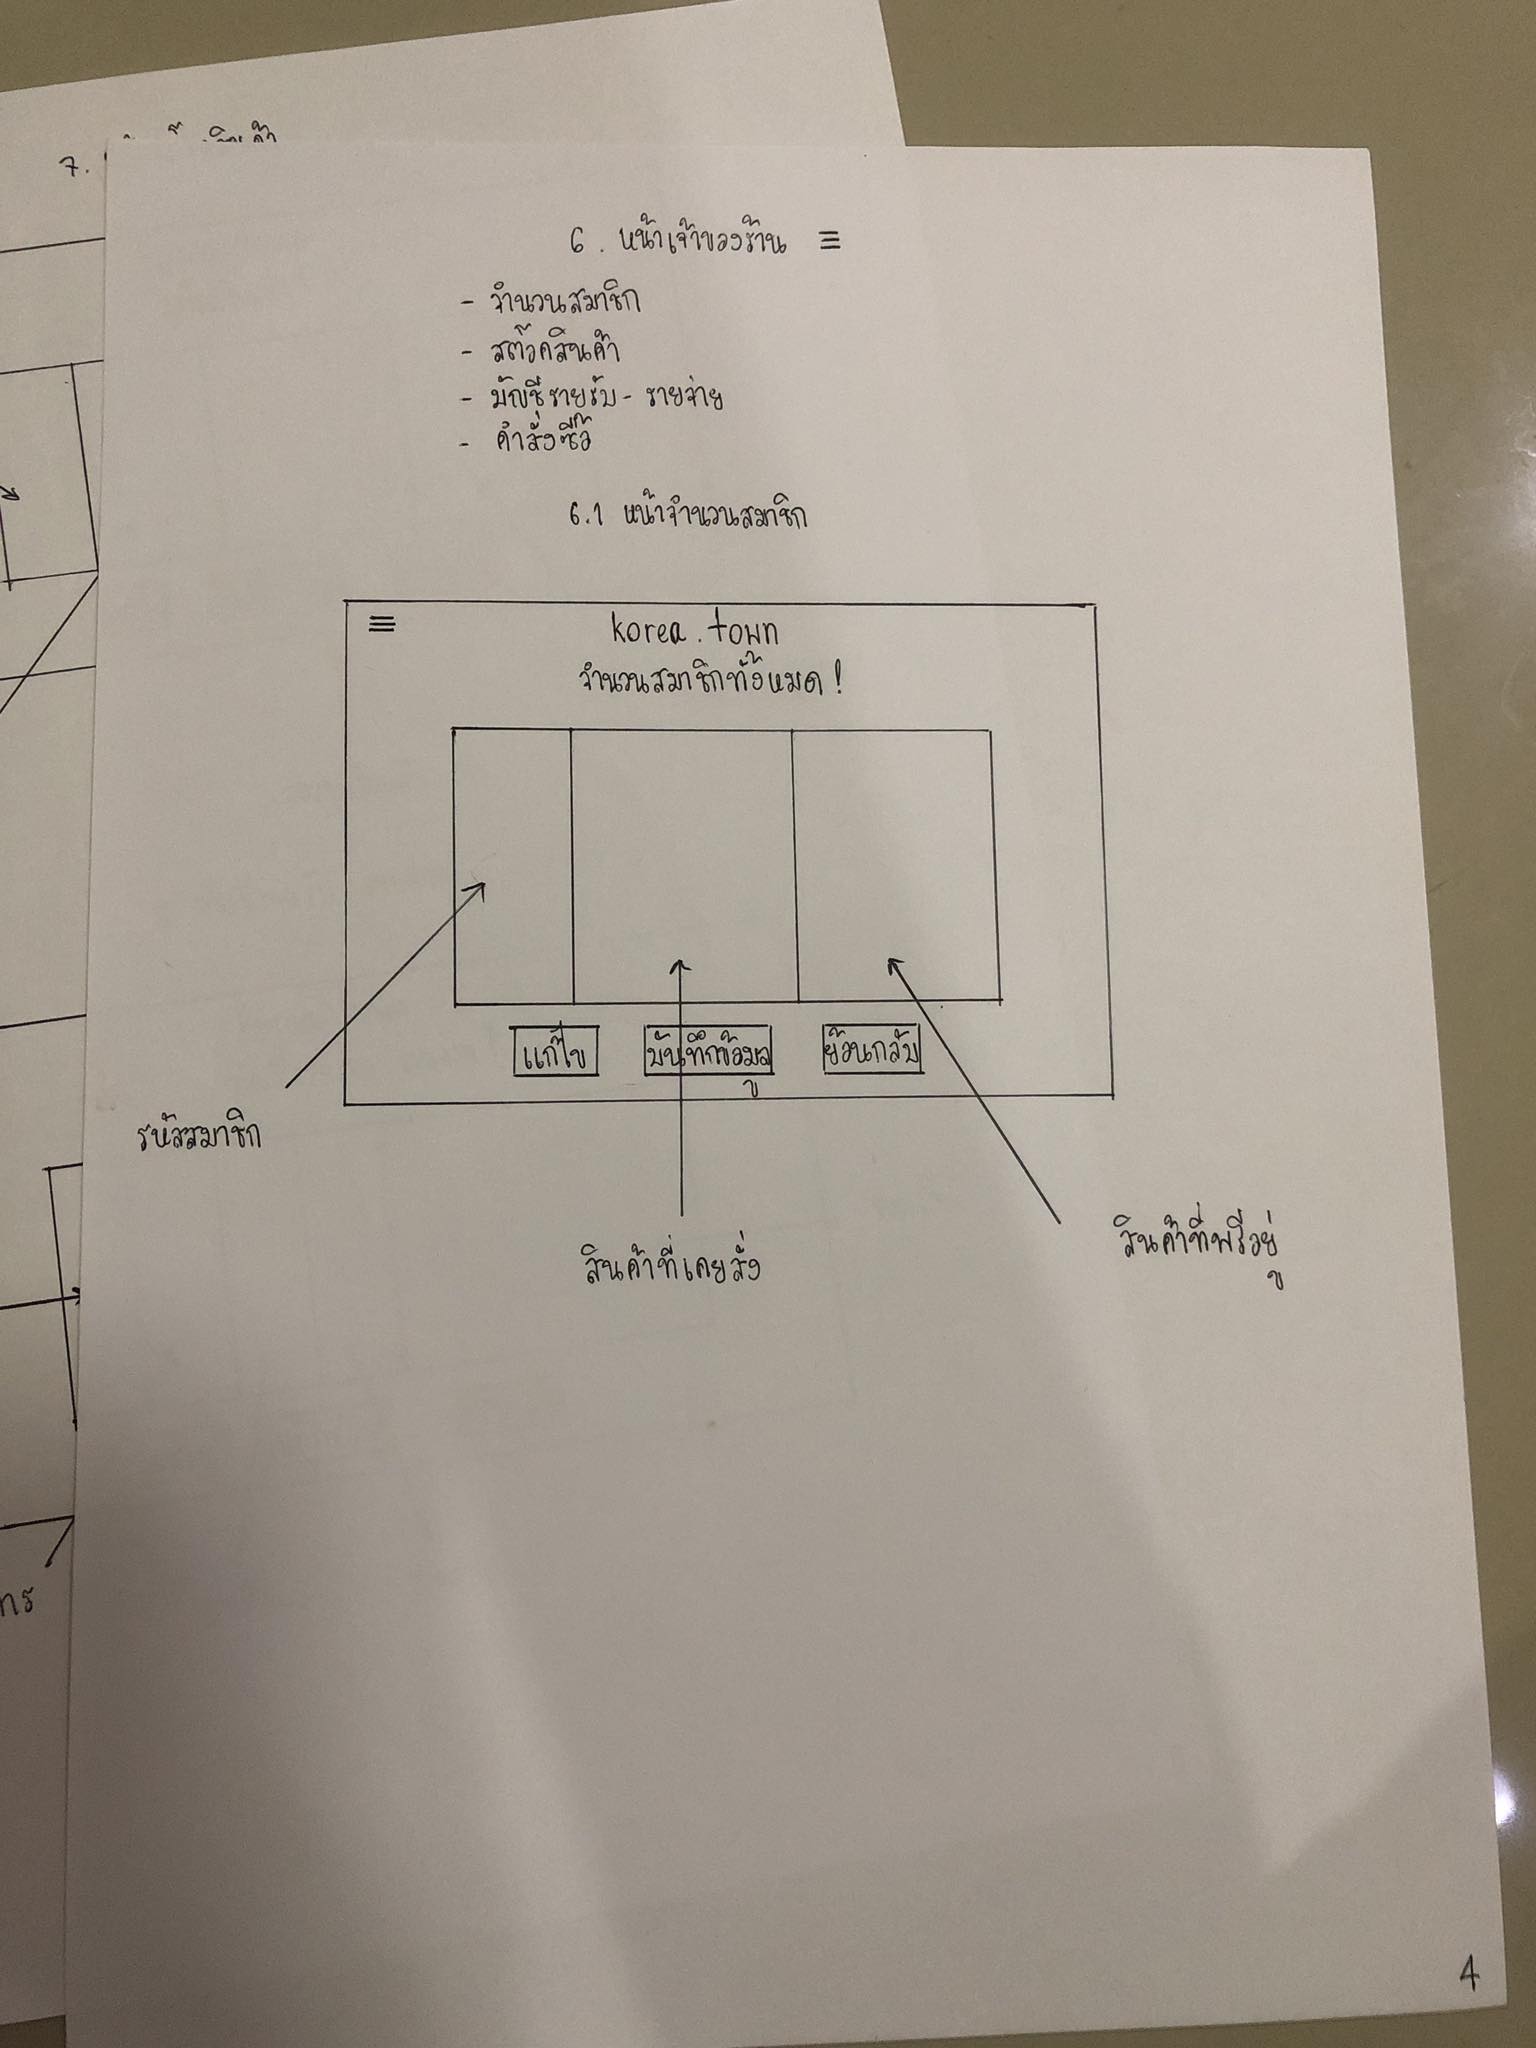 7.
6. หน้าเจ้าของร้าน ≡
- จำนวนสมาชิก
- สต๊อคสินค้า
- บัญชีรายรับ - รายจ่าย
- คำสั่งซื้อ
6.1 หน้าจำนวนสมาชิก
≡ korea.town
จำนวนสมาชิกทั้งหมด!
แก้ไข บันทึกข้อมูล ย้อนกลับ
รหัสสมาชิก
สินค้าที่เคยสั่ง
สินค้าที่พรีอยู่
4